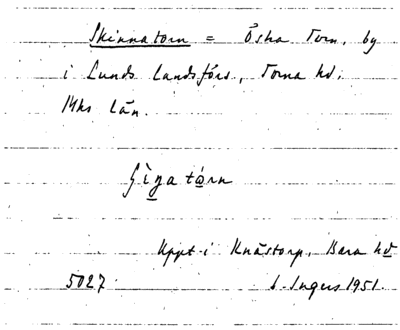 Skinnatorn = Östra Torn, by
i Lunds landsförs, Torna hd.
Mhs län.
Uppt. i Knästorp, Bara hd
5027. Ingers 1951.